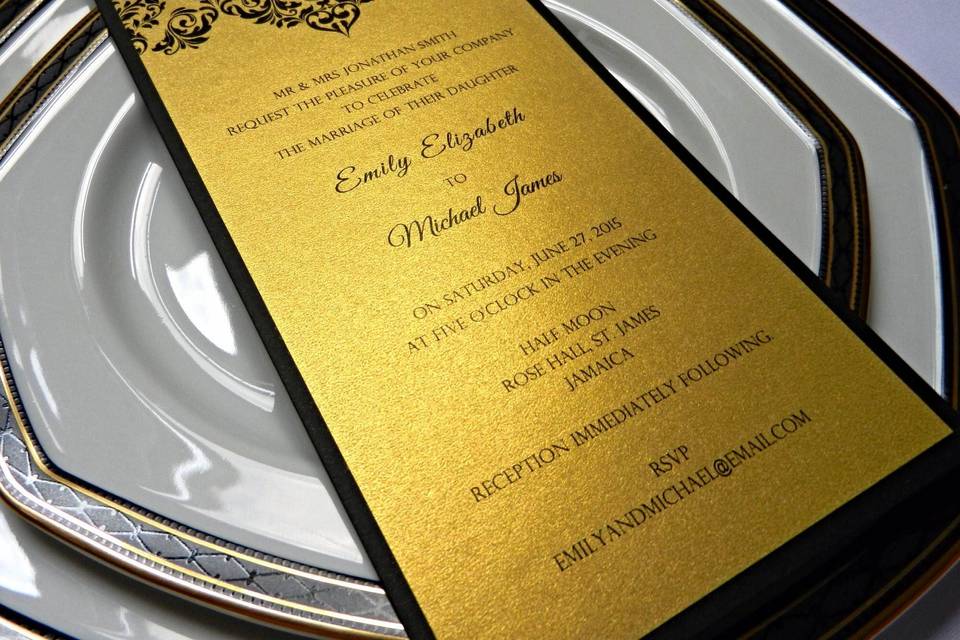 MR & MRS JONATHAN SMITH
REQUEST THE PLEASURE OF YOUR COMPANY
TO CELEBRATE
THE MARRIAGE OF THEIR DAUGHTER
Emily Elizabeth
TO
Michael James
ON SATURDAY, JUNE 27, 2015
AT FIVE O'CLOCK IN THE EVENING
HALF MOON
ROSE HALL, ST. JAMES
JAMAICA
RECEPTION IMMEDIATELY FOLLOWING.
RSVP
EMILYANDMICHAEL@EMAIL.COM